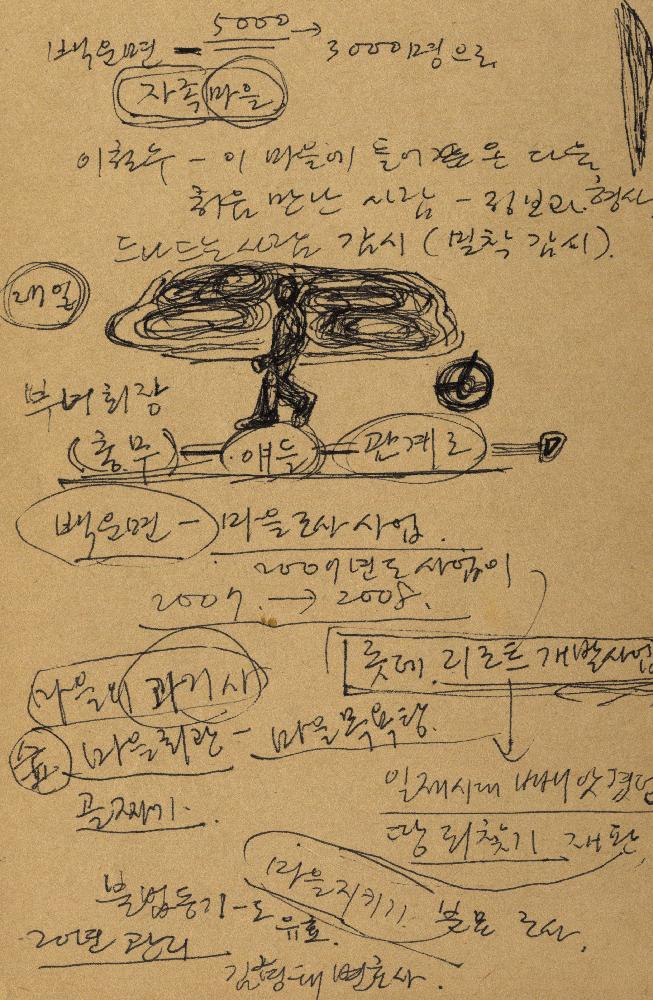 백운면 - 5000 → 3000명으로
자족마을
이철수 - 이 마을에 들어온 다음,
처음 만난 사람 - 정보과 형사
드나드는 사람 감시 (밀착 감시).
내일
부녀회장
(총무) - 얘들 - 관계로
백운면 - 마을조사 사업.
2009년도 사업이
2007. → 2008.
롯데.리조트 개발사업
마을의 과거사
마을회관 - 마을목욕탕.
일제시대 빼앗겼던
골짜기.
땅 되찾기 재판,
마을지키기
불법등기 - 도 유효.
분묘 조사,
20년 관리
김형태 변호사.